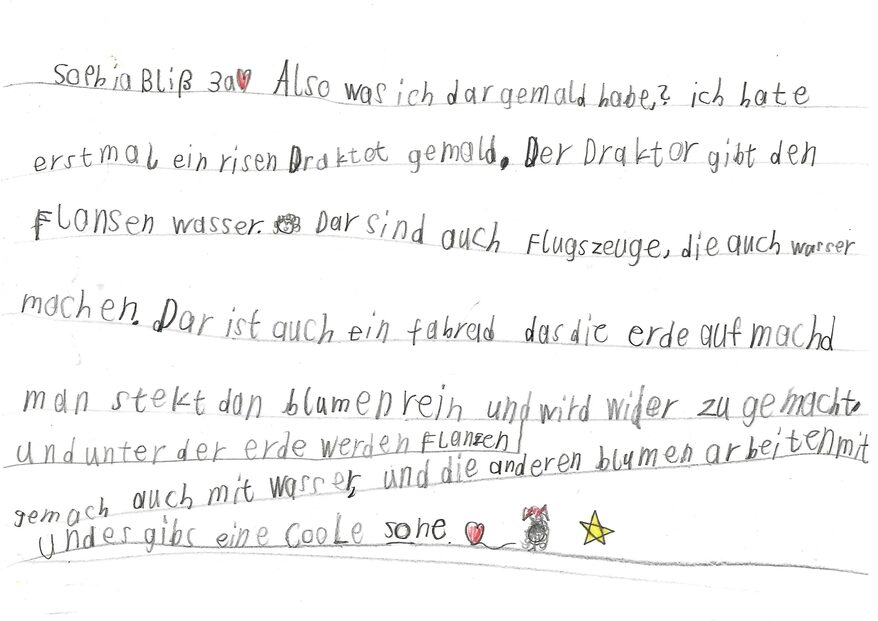 Sophia Bliß 3a Also was ich dar gemald habe,? ich hate
erstmal ein risen Draktot gemald. Der Draktor gibt den
Flansen wasser. Dar sind auch Flugszeuge, die auch wasser
machen. Dar ist auch ein fahread das die erde auf machd
man stekt dan blumen rein und wird wider zu gemacht.
und unter der erde werden Flanzen
gemach auch mit wasser, und die anderen blumen arbeiten mit
und es gibs eine CooLe sone.